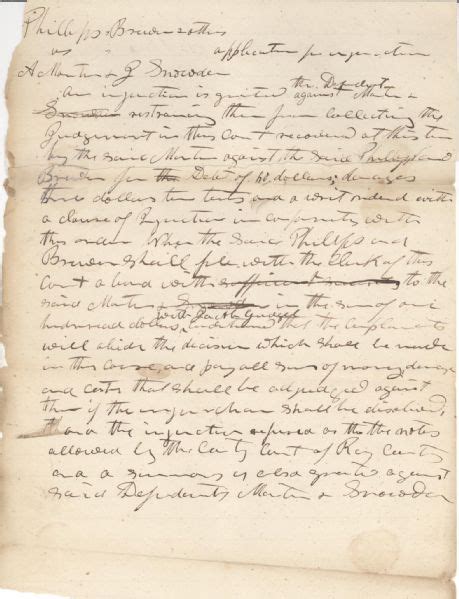 Phillips & Brown & others
vs application for injunction
A Martin & J Snowden
An injunction is granted against the Defendants Martin &
Snowden restraining them from collecting the
Judgement in this Court recovered at this term
by the said Martin against the said Phillips and
Brown for the Debt of 60 dollars, damages
three dollars ten cents and a writ with
a clause of Injunction in conformity with
this order When the said Phillips and
Brown shall file with the Clerk of this
Court a bond with sufficient to the
said Martin & Snowden in the sum of one
hundread dollars, with Jacob conditioned that the complainants
will abide the decision which shall be made
in this cause, and pay all sums of money, damages
and costs that shall be adjudged against
them if the injunction shall be disolved,
the injunction as to the notes
allowed by the County Court of Ray County
and a summons is also granted against
said Defendants Martin & Snowden